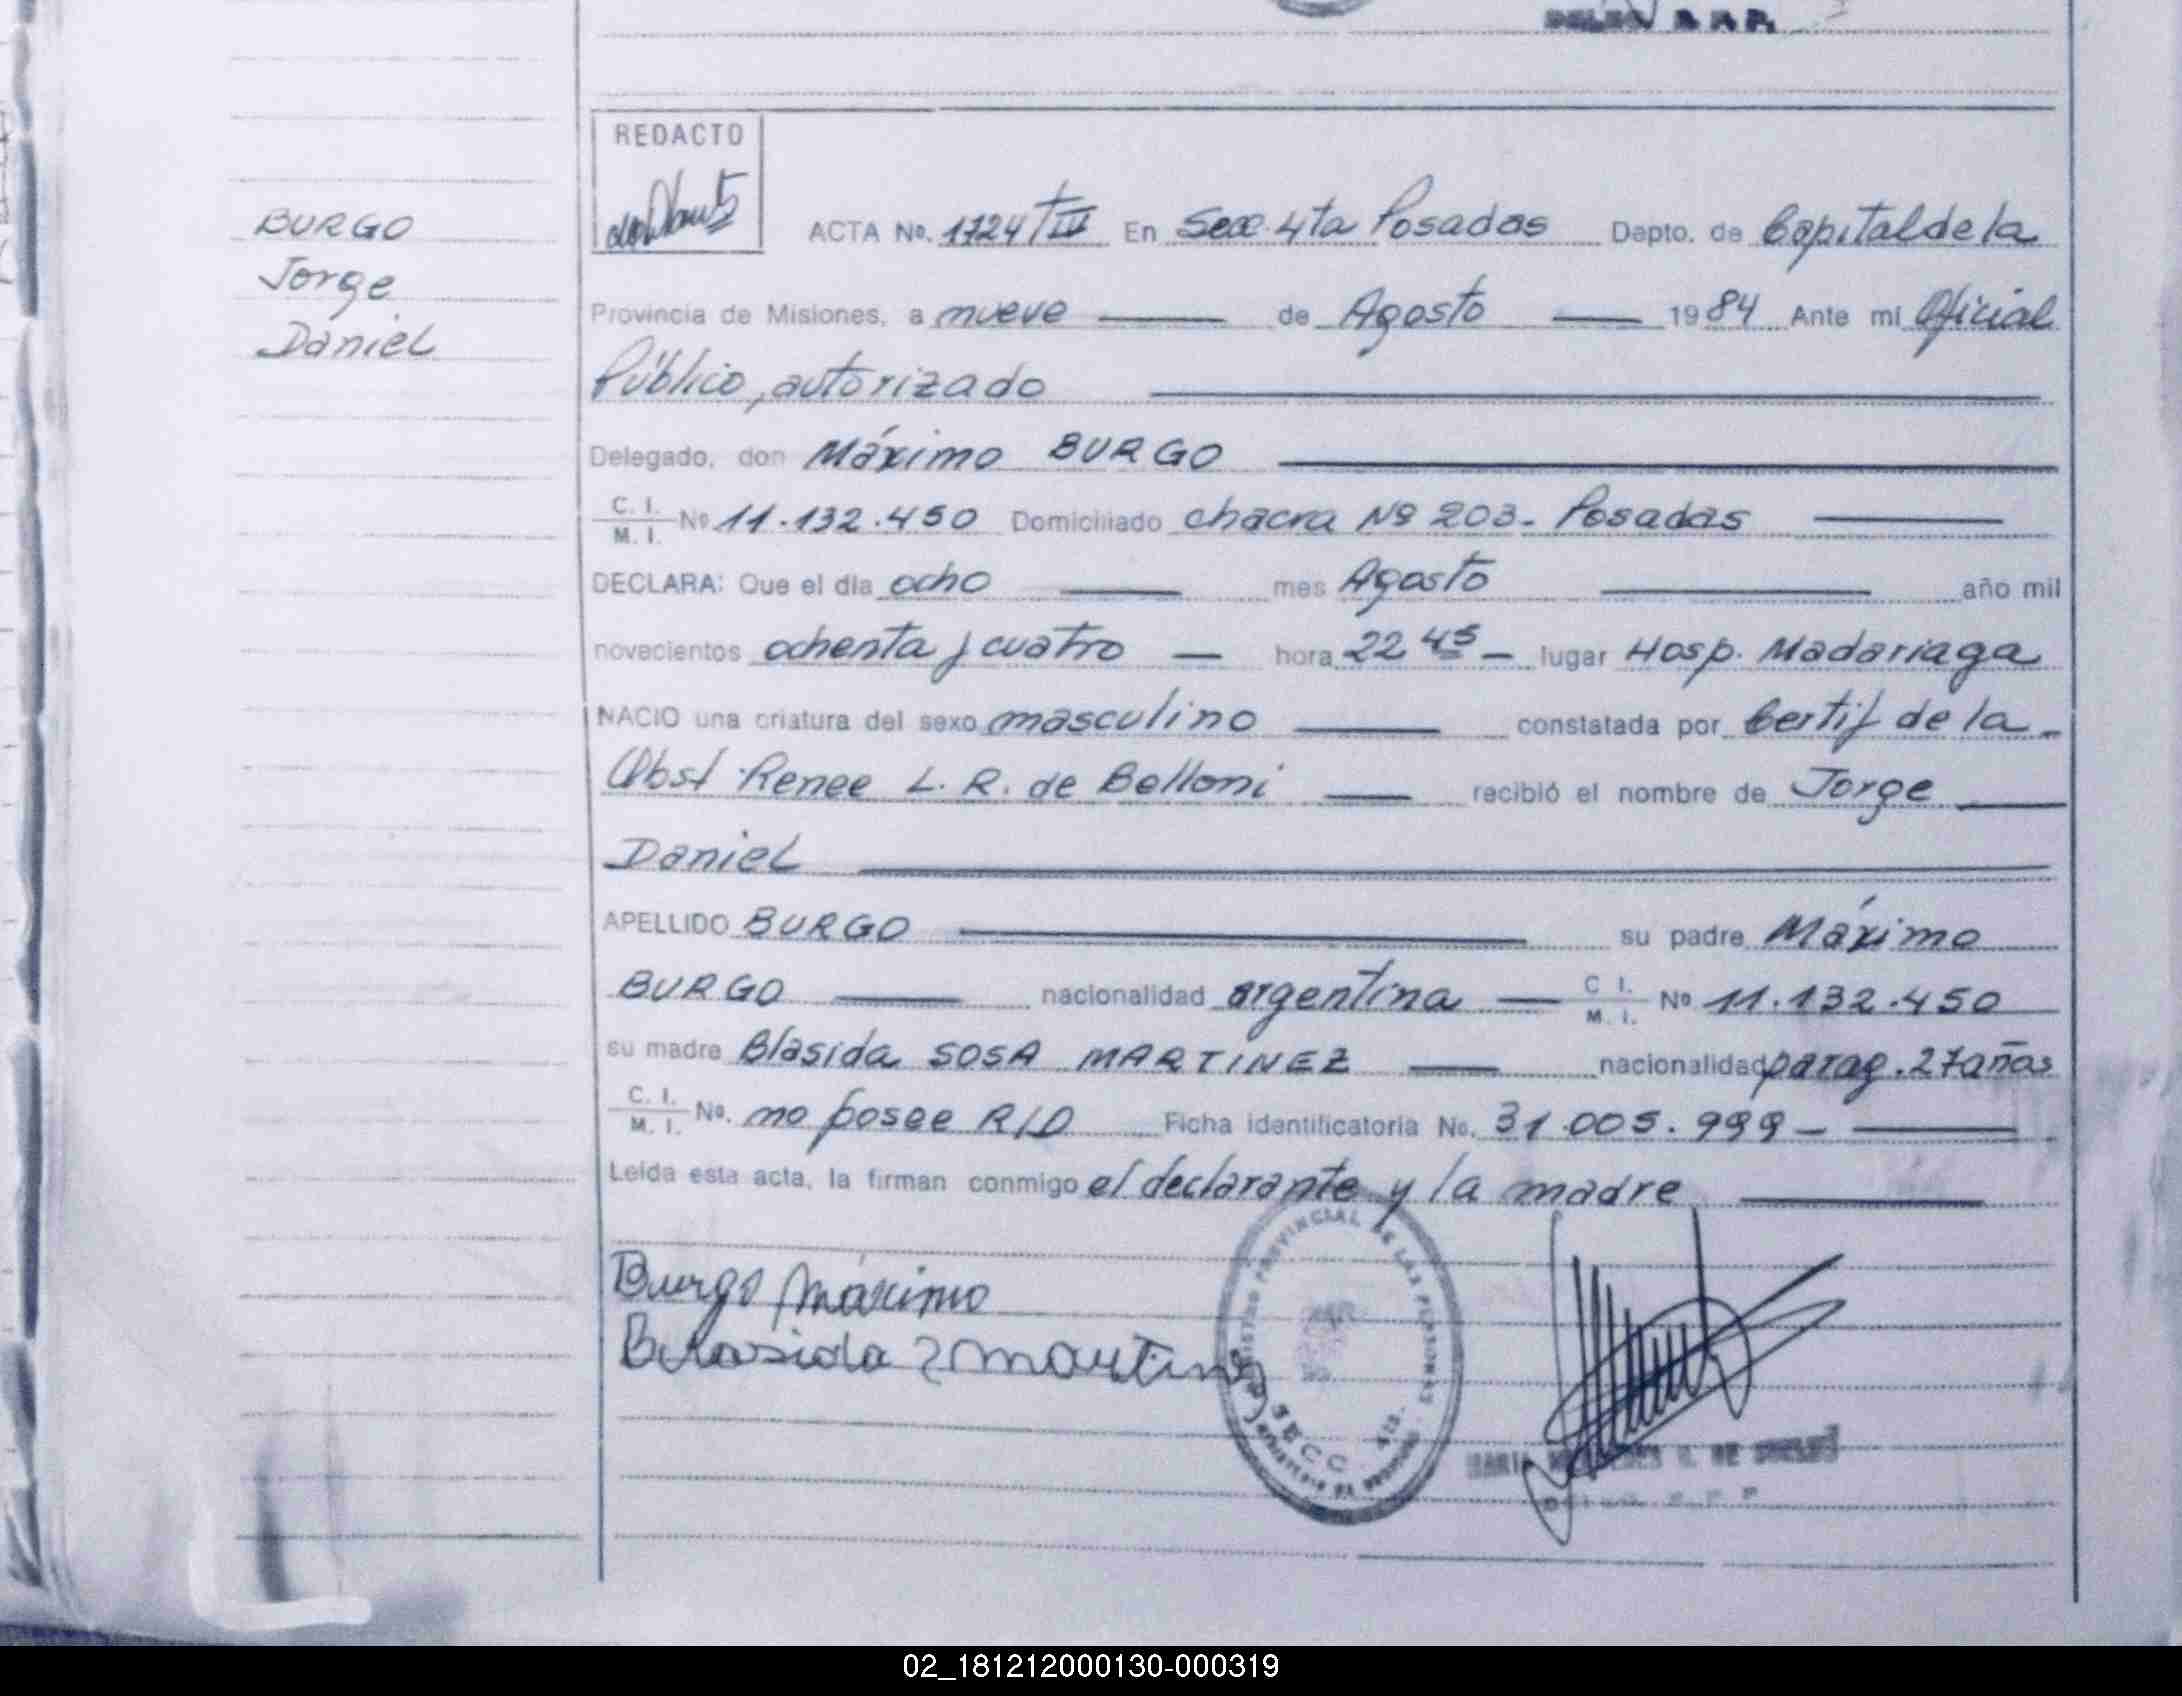 DELEG. R.P.P.
REDACTO
BURGO
Jorge
Daniel
ACTA No. 1724 T III En Secc. 4ta Posadas Dapto. de Capital de la
Provincia de Misiones, a nueve de Agosto 1984 Ante mi Oficial
Público, autorizado
Delegado, don Máximo BURGO
C. I. M. I. No 11.132.450 Domiciliado chacra Nº 203- Posadas
DECLARA: Que el día ocho mes Agosto año mil
novecientos ochenta y cuatro — hora 22 45 – lugar Hosp. Madariaga
NACIO una criatura del sexo masculino constatada por Certif de la
Obst. Renee L. R. de Belloni recibió el nombre de Jorge
Daniel
APELLIDO BURGO su padre Máximo
BURGO nacionalidad argentina — C I. M. I. No 11.132.450
su madre Blasida SOSA MARTINEZ nacionalidad parag. 27 años
C. I. M. I. No. no posee R/D Ficha identificatoria No. 31.005.999 –
Leída esta acta, la firman conmigo el declarante y la madre
Burgo Máximo
Blasida S Martinez
REGISTRO PROVINCIAL DE LAS PERSONAS
SECC. 4ta.
02_181212000130-000319